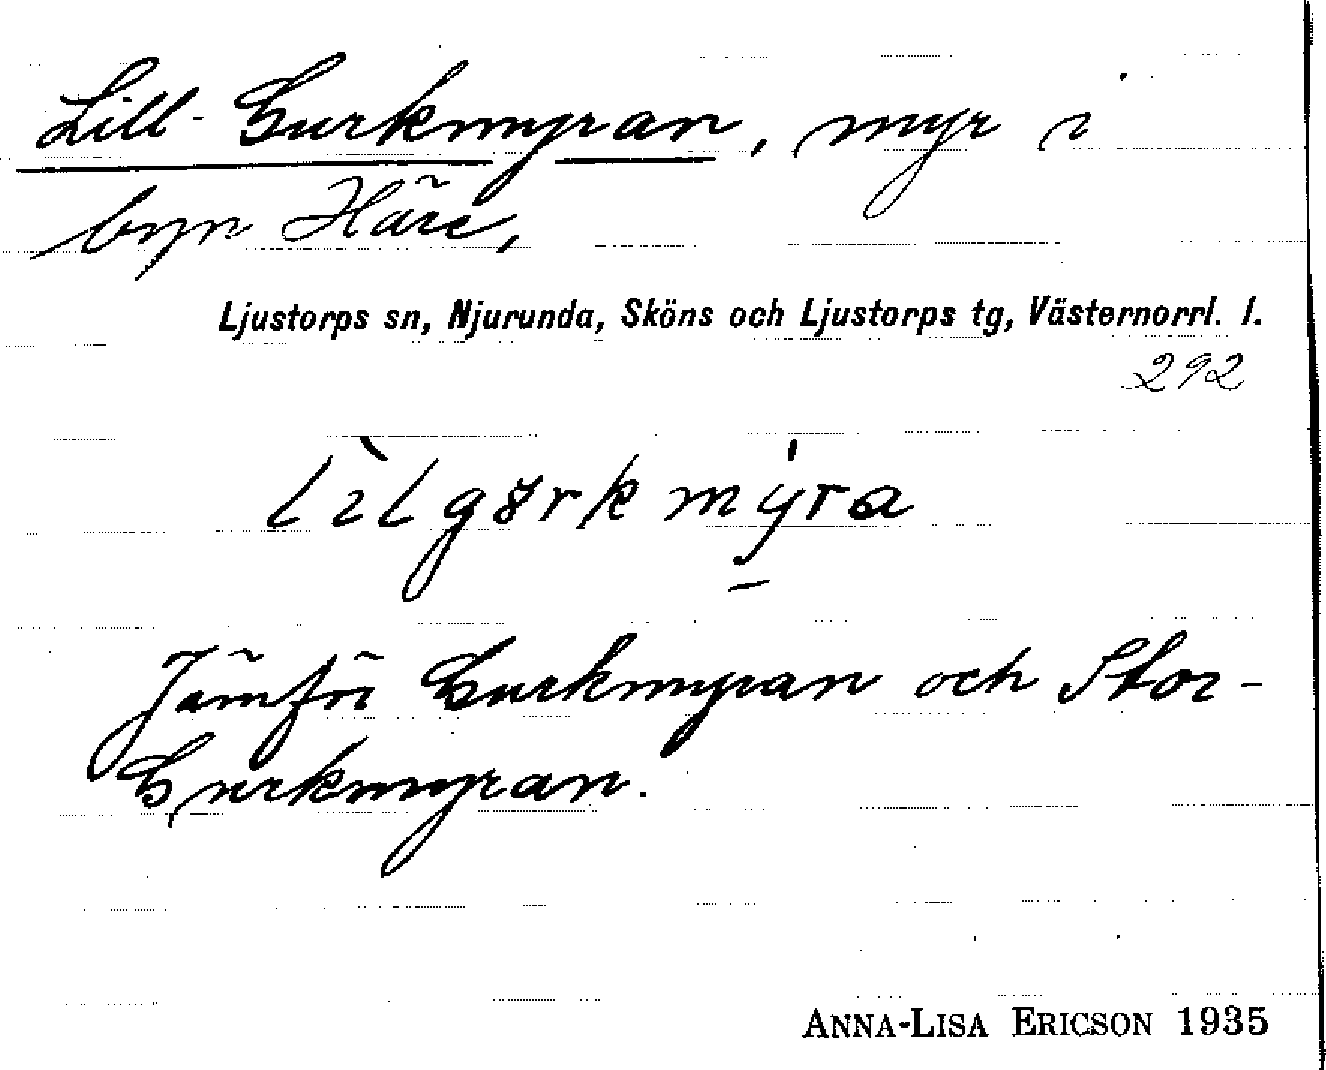 Lill-Gurkmyran, myr i
byn Häre,
Ljustorps sn, Njurunda, Sköns och Ljustorps tg, Västernorrl. l.
292
Jämför Gurkmyran och Stor-
Gurkmyran.
ANNA-LISA ERICSON 1935